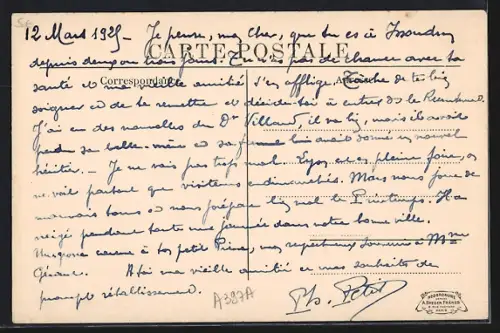 12 Mars 1925 - Je pense, mon cher, que tu es à Issoudun
CARTE POSTALE
depuis deux ou trois jours. Tu n'as pas de chance avec ta
Correspondance
santé et ma vieille amitié s'en afflige. Tâche de te bien
soigner et de te remettre et décide-toi à entrer
J'ai eu des nouvelles du Dr Villard, il va bien, mais il avait
perdu sa belle-mère et sa femme lui avait donné un nouvel
héritier. - Je ne vais pas trop mal. Lyon est en pleine foire, on
ne voit partout que visiteurs endimanchés. Mais nous
mauvais temps et nous prépare le Printemps. Il a
neigé pendant toute une journée dans notre bonne ville.
caresse à ton petit Pierre, mes respectueux souvenirs à Mme
A toi ma vieille amitié et mes souhaits de
prompt rétablissement.
A387A
Ph. Petit